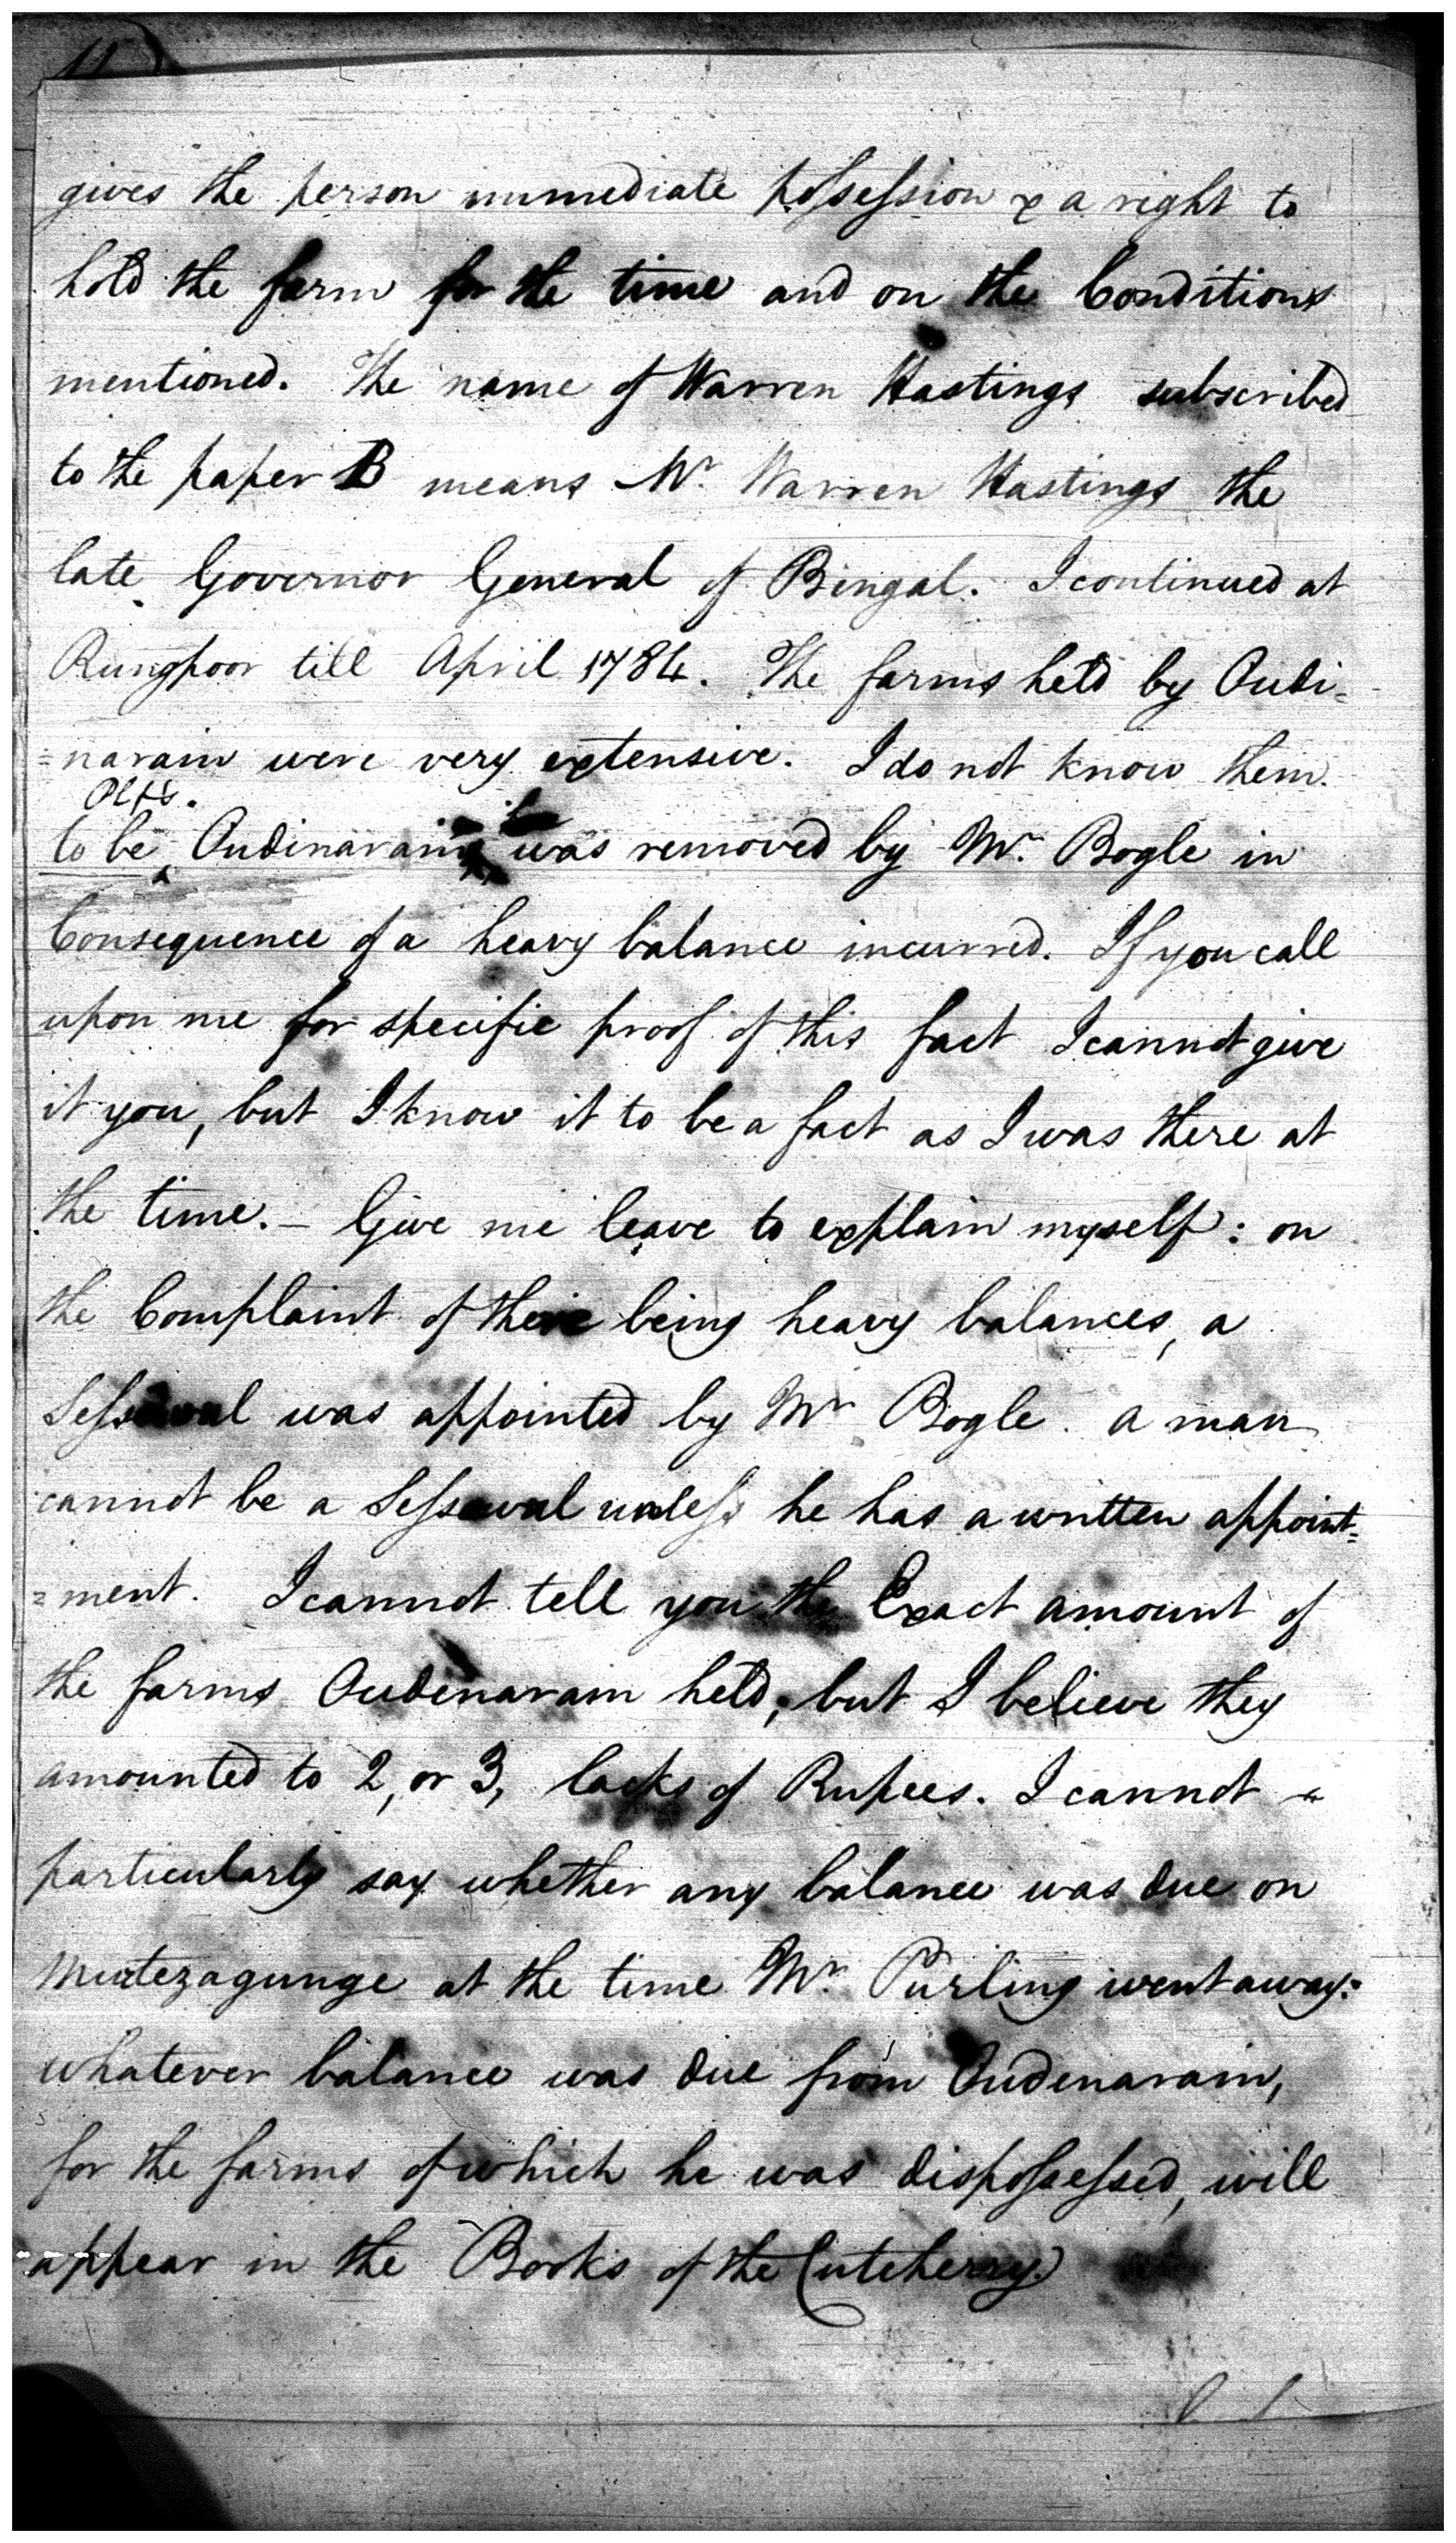 gives the person immediate possession & a right to
hold the farm for the time and on the Conditions
mentioned. The name of Warren Hastings subscribed
to the paper B means Mr. Warren Hastings the
late Governor General of Bengal. I continued at
Rungpoor till April 1784. The farms held by Oudi=
=narain were very extensive. I do not know them
to be Oudinarain was removed by Mr. Bogle in
Consequence of a heavy balance incurred. If you call
upon me for specific proof of this fact I cannot give
it you, but I know it to be a fact as I was there at
the time. – Give me leave to explain myself: on
the Complaint of there being heavy balances, a
Sessawul was appointed by Mr Bogle. a man
cannot be a Sessawul unless he has a written appoint=
=ment. I cannot tell you the Exact amount of
the farms Oudenarain held; but I believe they
amounted to 2, or 3, lacks of Rupees. I cannot
particularly say whether any balance was due on
Mutezagunge at the time Mr. Purling went away:
whatever balance was due from Oudenarain,
for the farms of which he was dispossessed, will
appear in the Books of the Cutcherry.